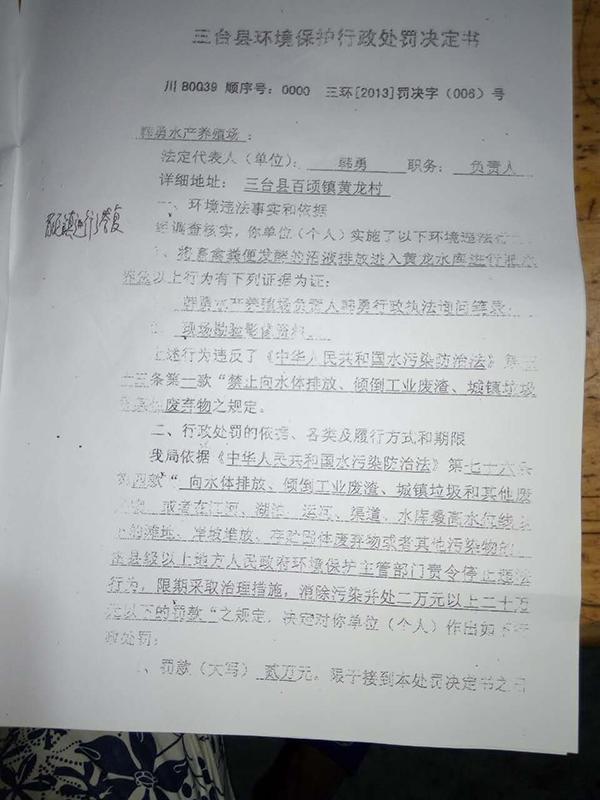 三台县环境保护行政处罚决定书
川B0039 顺序号：0000 三环[2013]罚决字（006）号
韩勇水产养殖场：
法定代表人（单位）： 韩勇 职务： 负责人
详细地址： 三台县百顷镇黄龙村
一、环境违法事实和依据
经调查核实，你单位（个人）实施了以下环境违法行
将畜禽粪便发酵的沼液排放进入黄龙水库进行
以上行为有下列证据为证：
韩勇水产养殖场负责人韩勇行政执法询问笔录；
现场勘验影像资料。
上述行为违反了《中华人民共和国水污染防治法》第三
十三条第一款“禁止向水体排放、倾倒工业废渣、城镇垃圾
废弃物之规定。
二、行政处罚的依据、各类及履行方式和期限
我局依据《中华人民共和国水污染防治法》第七十六条
第四款“ 向水体排放、倾倒工业废渣、城镇垃圾和其他废
或者在江河、湖泊、运河、渠道、水库最高水位线以
下的滩地、岸坡堆放、存贮固体废弃物或者其他污染物的，
由县级以上地方人民政府环境保护主管部门责令停止违法
行为，限期采取治理措施，消除污染并处二万元以上二十万
元以下的罚款“之规定，决定对你单位（个人）作出如下行
政处罚：
、罚款（大写） 贰万元。限于接到本处罚决定书之日